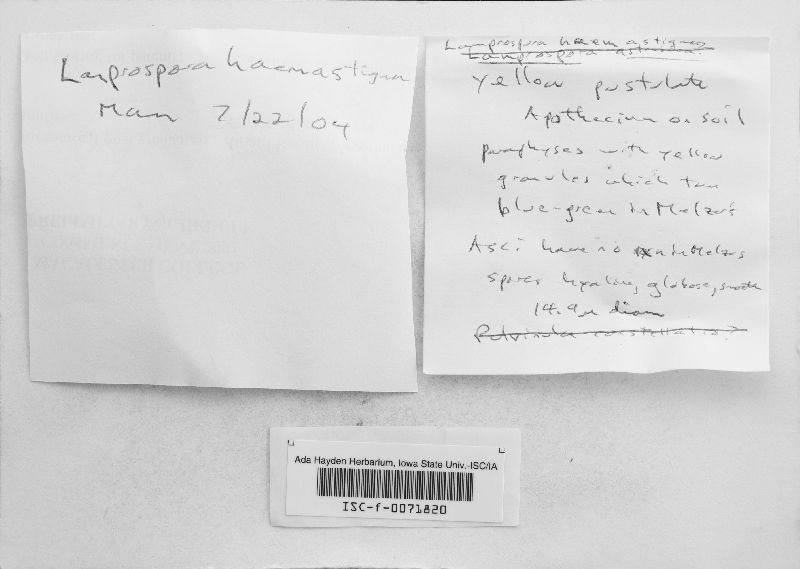 Lamprospora haemastigma
Man 7/22/04
Lamprospora haemastigma
Lamprospora
yellow pustulate
Apothecium on soil
paraphyses with yellow
granules which turn
blue-green in Melzer's
Asci have no rxn in Melzers
spores hyaline, globose, smooth
14.9µ diam
Pulvinula constellatio?
Ada Hayden Herbarium, Iowa State Univ.-ISC/IA
ISC-f-0071820